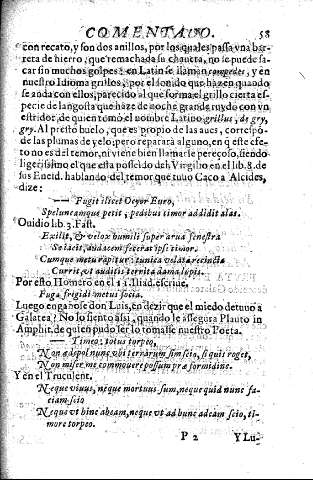 COMENTADO. 58
con recato, y son dos anillos, por los quales passa vna bar-
reta de hierro, que remachada su chaueta, no se puede sa-
car sin muchos golpes: en Latin se llaman compedes, y en
nuestro Idioma grillos, por el sonido que hazen quando
se anda con ellos, parecido al que forma el grillo cierta es-
pecie de langosta que haze de noche grande ruydo con vn
estridor, de quien tomò el nombre Latino grillus, de gry,
gry. Al presto huelo, que es propio de las aues, correspō-
de las plumas de yelo; pero repararà alguno, en q̃ este efe-
to no es del temor, ni viene bien llamarle pereçoso, siendo
ligerissimo el que esta posseìdo del Virgilio en el lib. 8. de
sus Eneid. hablando del temor que tuuo Caco a Alcides,
dize:
— Fugit ilicet Ocyor Euro,
Speluncamque petit, pedibus timor addidit alas.
Ouidio lib. 3. Fast.
Exilit, & velox humili super arua fenestra
Se iacit, audacem fecerat ipse timor.
Cumque metu rapitur: tunica velata recincta
Currit, vt auditis territa dama lupis.
Por esto Homero en el 11. Iliad. escriue.
Fuga frigidi metus socia.
Luego engañose don Luis, en dezir que el miedo detuuo a
Galatea? No lo siento assi, quando le assegura Plauto in
Amphit. de quien pudo ser lo tomasse nuestro Poeta.
— Timeo: totus torpeo,
Non ædepol nunc vbi terrarum sim scio, si quit roget,
Non miser me commouere possum præ formidine.
Y en el Truculent.
Neque viuus, neque mortuus sum, neque quid nunc fa-
ciam scio
Neque vt hinc abeam, neque vt ad hunc adeam scio, ti-
more torpeo.
P 2 Y Lu-